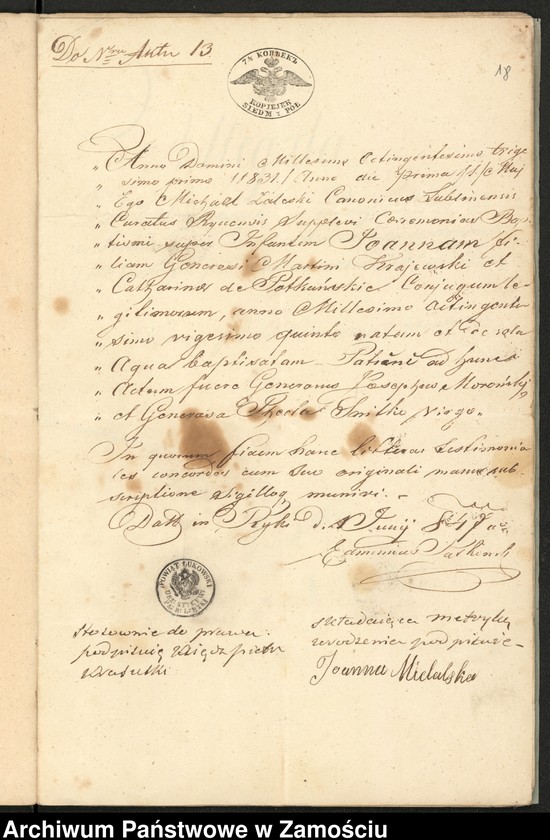 Do Nru Aktu 13
7½ КОПѢЕКЪ
KOPIEJEK
SIEDM I PÓŁ
18
„ Anno Domini Millesimo Octingentesimo trige
„ simo primo /1831/ Anno die prima /1/ Maj
„ Ego Michael Zaleski Canonicus Lublinensis
„ Curatus Rycensis Supplevi Ceremonias Bap
„ tismi super Infantem Joannam fi-
„ liam Generosi Martini Krajewski et
„ Catharinae de Potkańskie Conjugum le-
„ gitimorum, anno Millesimo Octingente
„ simo vigesimo quinto natam et de sola
„ Aqua baptisatam – Patrini ad hunc
„ Actum fuere Generosus Josephus Moroński
„ et Generosa Thecla Smitko Virgo „
In quorum fidem hanc litteras testimonia
les concordes cum suo originali manu sub-
scriptione Sigilloq munivi. –
Datt in Ryki d. 1 Junij 847 a
Edmundus
POWIAT ŁUKOWSKI
stosownie do prawa
podpisuję Xiądz Piotr
składająca metrykę
urodzenia podpisuję –
Joanna Mielalska
Archiwum Państwowe w Zamościu